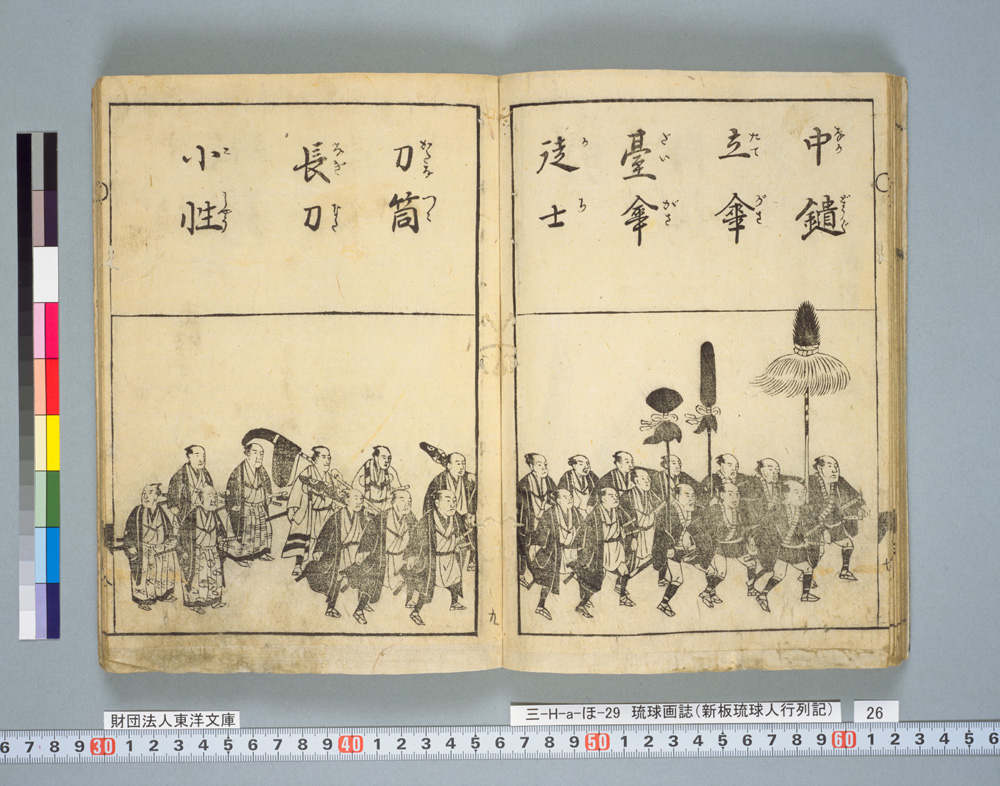 中鑓
立傘
臺傘
徒士
刀筒
長刀
小性
九
財団法人東洋文庫
三-H-a-ほ-29 琉球画誌(新板琉球人行列記)
26
6 7 8 9 30 1 2 3 4 5 6 7 8 9 40 1 2 3 4 5 6 7 8 9 50 1 2 3 4 5 6 7 8 9 60 1 2 3 4 5 6